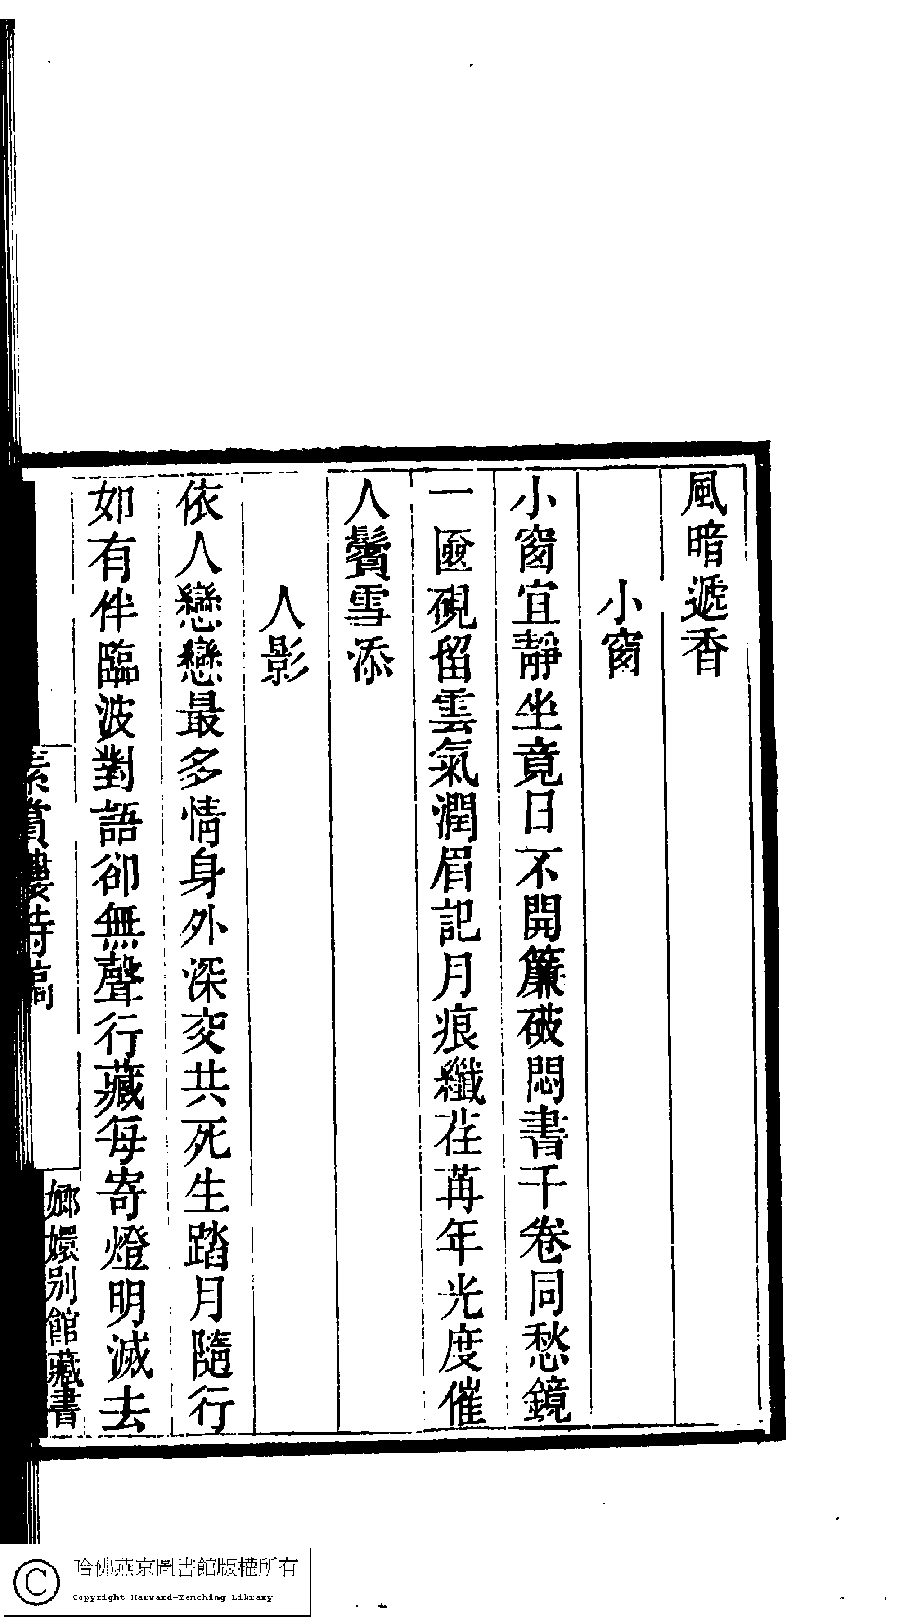 風暗遞香
小窗
小窗宜靜坐竟日不開簾破悶書千卷同愁鏡
一匳硯留雲氣潤眉記月痕纖荏苒年光度催
人鬢雪添
人影
依人戀戀最多情身外深交共死生踏月隨行
如有伴臨波對語卻無聲行藏每寄燈明滅去
素賞樓詩稿
嫏嬛别館藏書
哈佛燕京圖書館版權所有
Copyright Harvard-Yenching Library